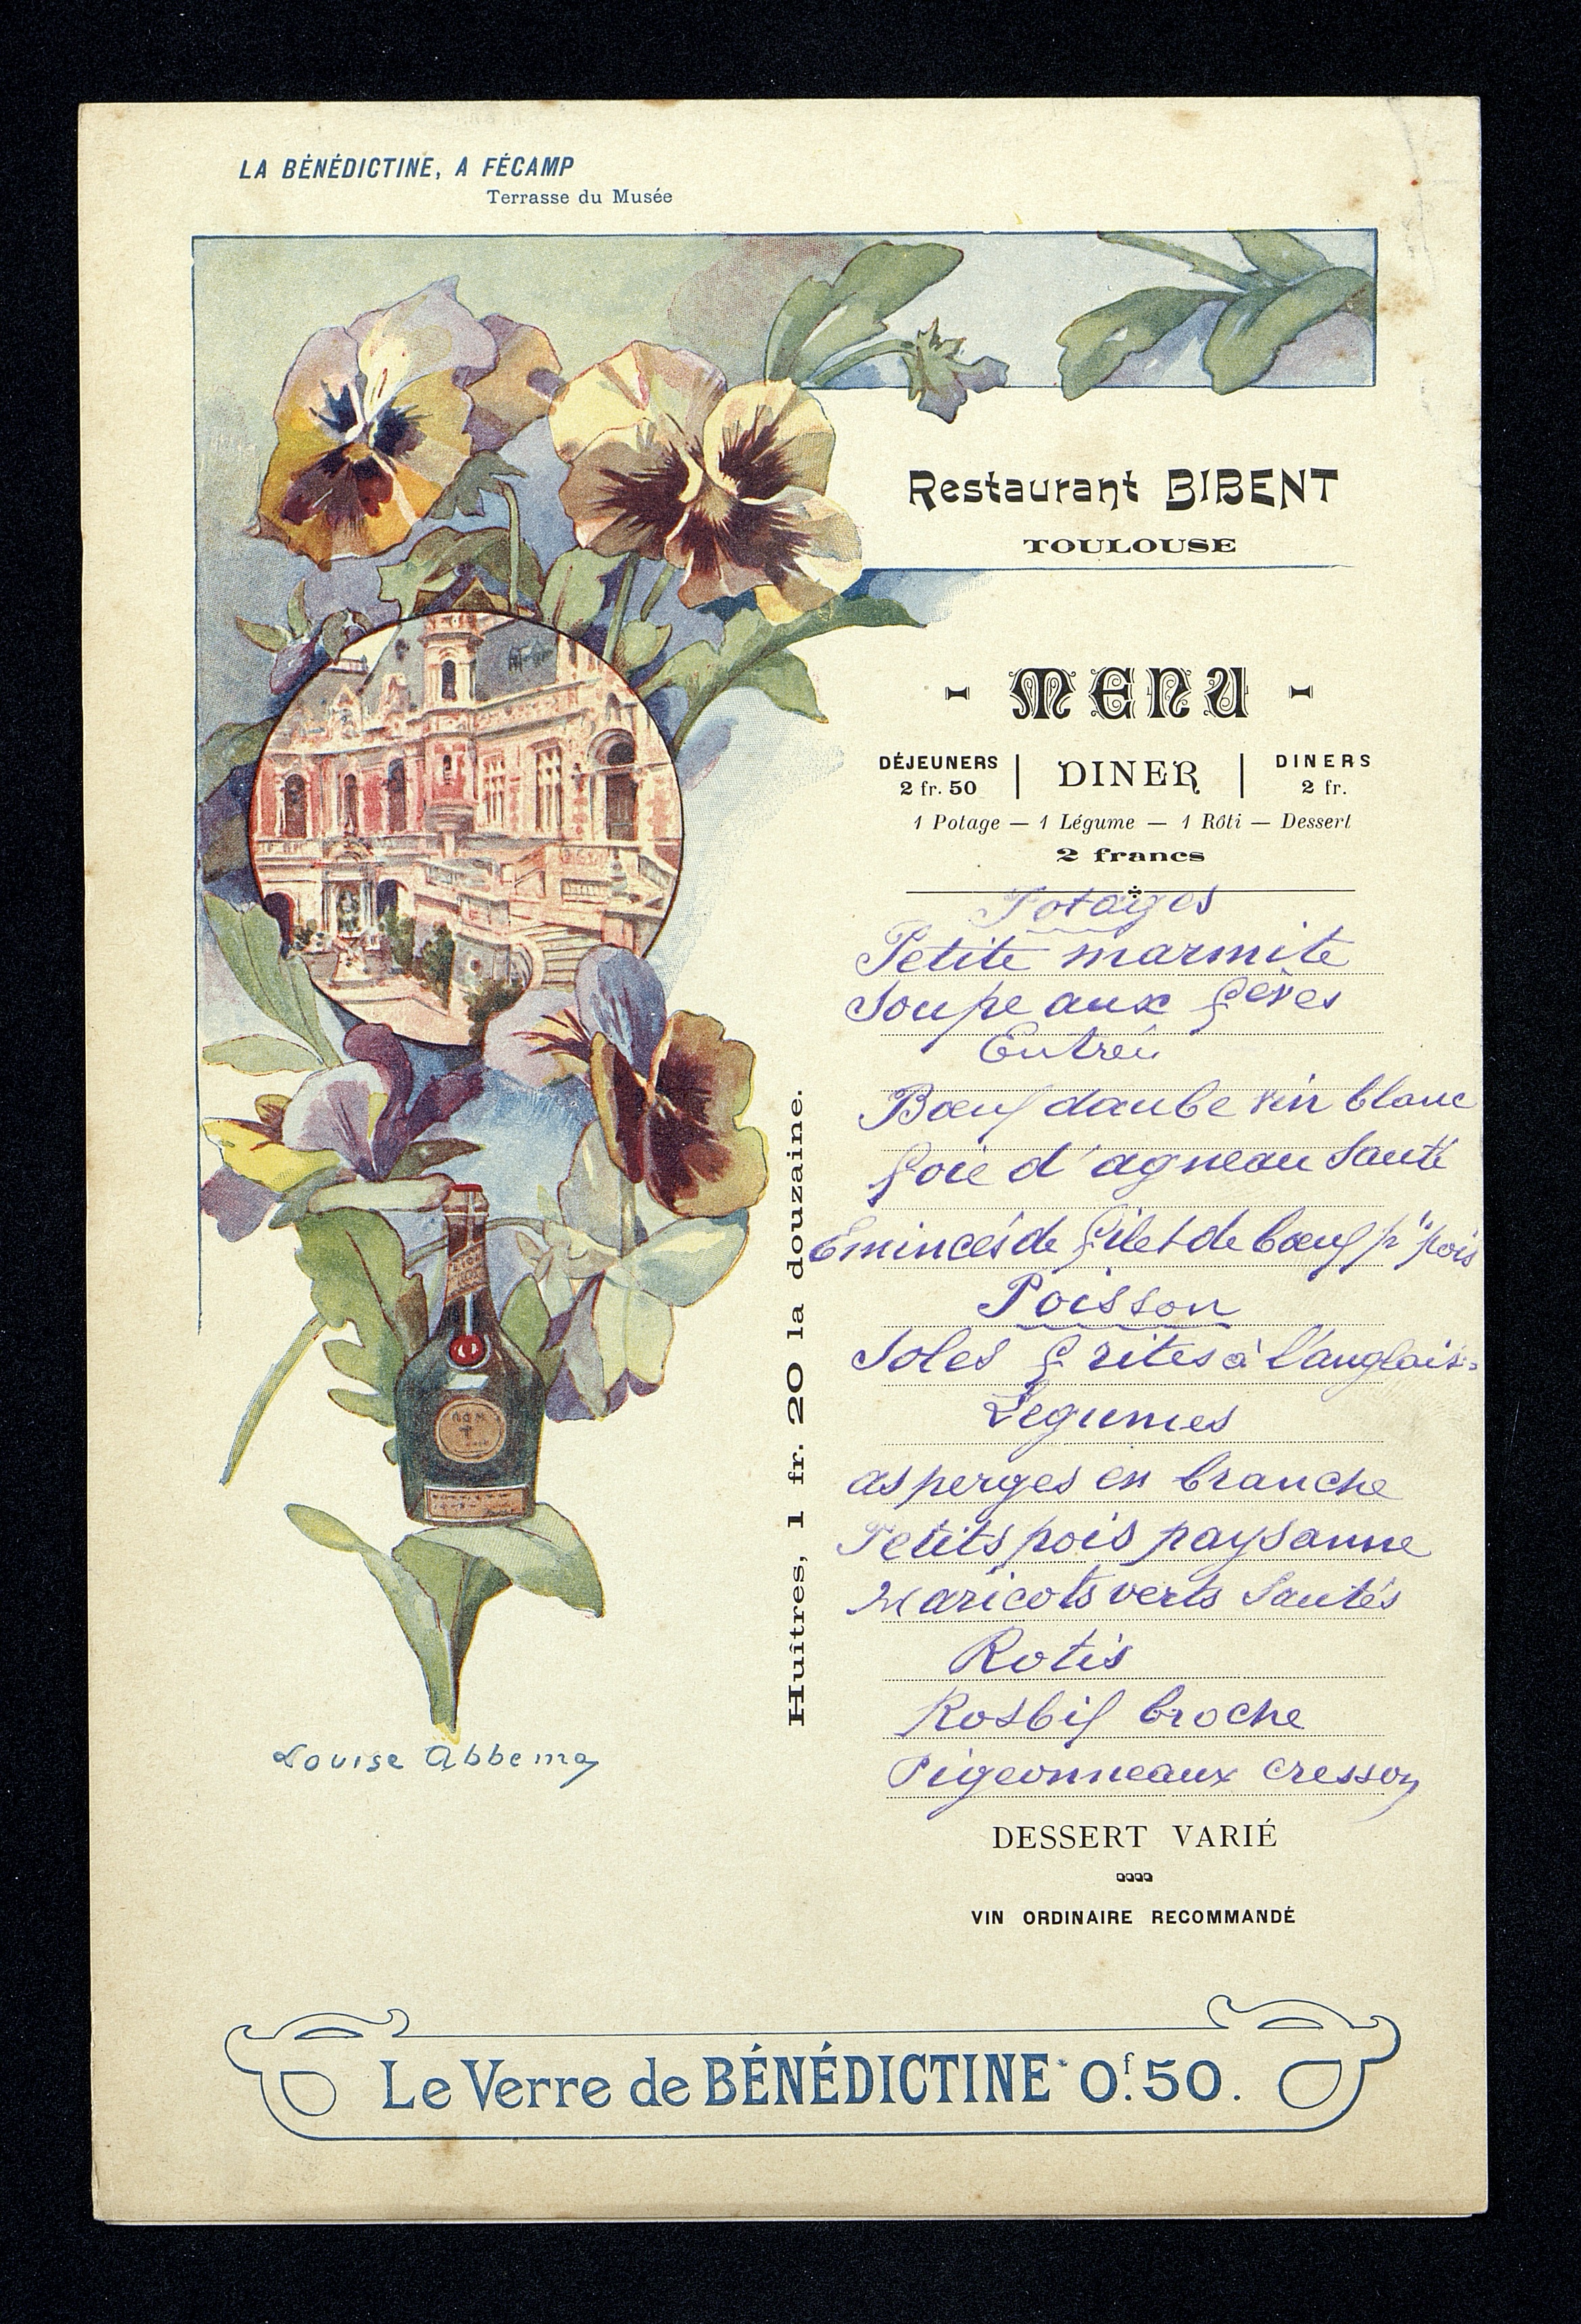 LA BÉNÉDICTINE, A FÉCAMP
Terrasse du Musée
Restaurant BIBENT
TOULOUSE
- MENU -
DÉJEUNERS
2 fr. 50
DINER
DINERS
2 fr.
1 Potage — 1 Légume — 1 Rôti — Dessert
2 francs
Potages
Petite marmite
Soupe aux fèves
Entrée
Bœuf daube vin blanc
foie d'agneau sauté
Emincés de filet de bœuf pts pois
Poisson
Soles frites à l'anglaise
Legumes
asperges en branche
Petits pois paysanne
Haricots verts Sautés
Rotis
Rosbif broche
Pigeonneaux cresson
DESSERT VARIÉ
VIN ORDINAIRE RECOMMANDÉ
Huîtres, 1 fr. 20 la douzaine.
Louise Abbema
Le Verre de BÉNÉDICTINE* 0f.50.